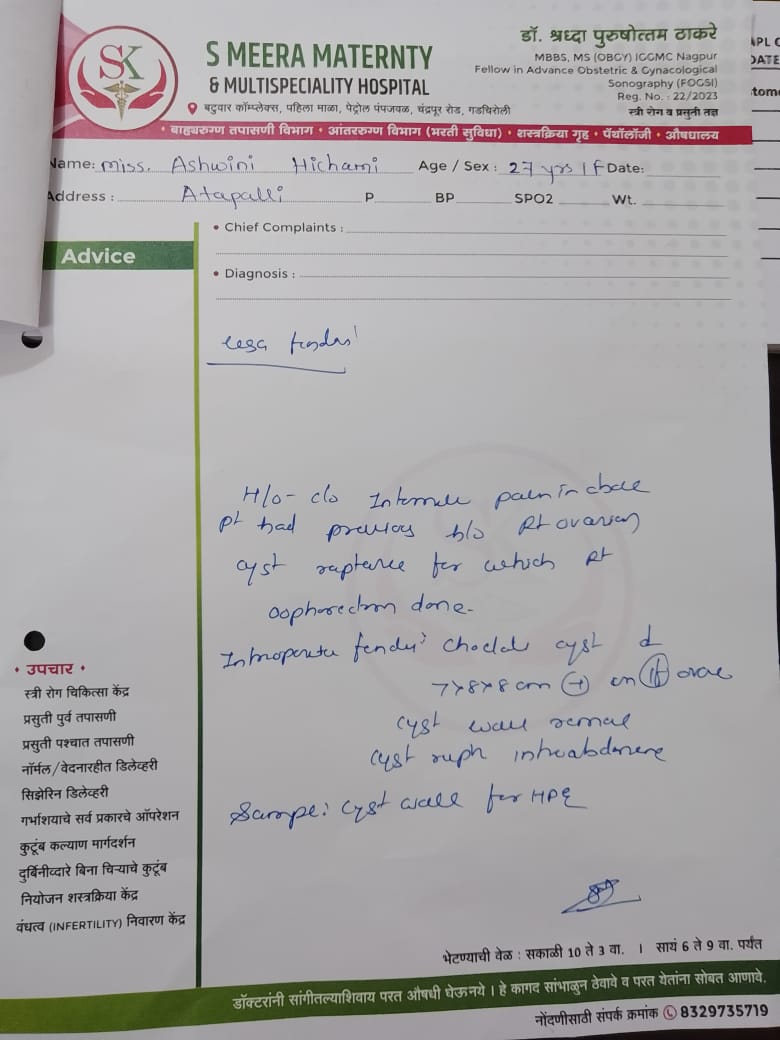 SK
S MEERA MATERNTY
& MULTISPECIALITY HOSPITAL
बटुवार कॉम्प्लेक्स, पहिला माळा, पेट्रोल पंपजवळ, चंद्रपूर रोड, गडचिरोली
डॉ. श्रध्दा पुरुषोत्तम ठाकरे
MBBS, MS (OBGY) IGGMC Nagpur
Fellow in Advance Obstetric & Gynacological
Sonography (FOGSI)
Reg. No. : 22/2023
स्त्री रोग व प्रसुती तज्ञ
• बाह्यरुग्ण तपासणी विभाग • आंतररुग्ण विभाग (भरती सुविधा) • शस्त्रक्रिया गृह • पॅथॉलॉजी • औषधालय
Name: miss. Ashwini Hichami Age / Sex : 27 yrs / f Date:
Address : Atapalli P BP SPO2 Wt.
• Chief Complaints :
Advice
• Diagnosis :
H/o - c/o pain in
pt had h/o Rt ovarian
cyst for which Rt
done.
cyst
7x8x8 cm + on
cyst wall
cyst
Sample: cyst wall for HPE
• उपचार •
स्त्री रोग चिकित्सा केंद्र
प्रसुती पुर्व तपासणी
प्रसुती पश्चात तपासणी
नॉर्मल/वेदनारहीत डिलेव्हरी
सिझेरिन डिलेव्हरी
गर्भाशयाचे सर्व प्रकारचे ऑपरेशन
कुटूंब कल्याण मार्गदर्शन
दुर्बिनीव्दारे बिना चिऱ्याचे कुटूंब
नियोजन शस्त्रक्रिया केंद्र
वंधत्व (INFERTILITY) निवारण केंद्र
भेटण्याची वेळ : सकाळी 10 ते 3 वा. । सायं 6 ते 9 वा. पर्यंत
डॉक्टरांनी सांगीतल्याशिवाय परत औषधी घेऊनये । हे कागद सांभाळुन ठेवावे व परत येतांना सोबत आणावे.
नोंदणीसाठी संपर्क क्रमांक 8329735719